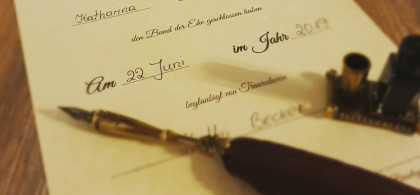 Katharina
den Bund der Ehe geschlossen haben
Am 22 Juni im Jahr 2019
beglaubigt von Traurednerin
Becker